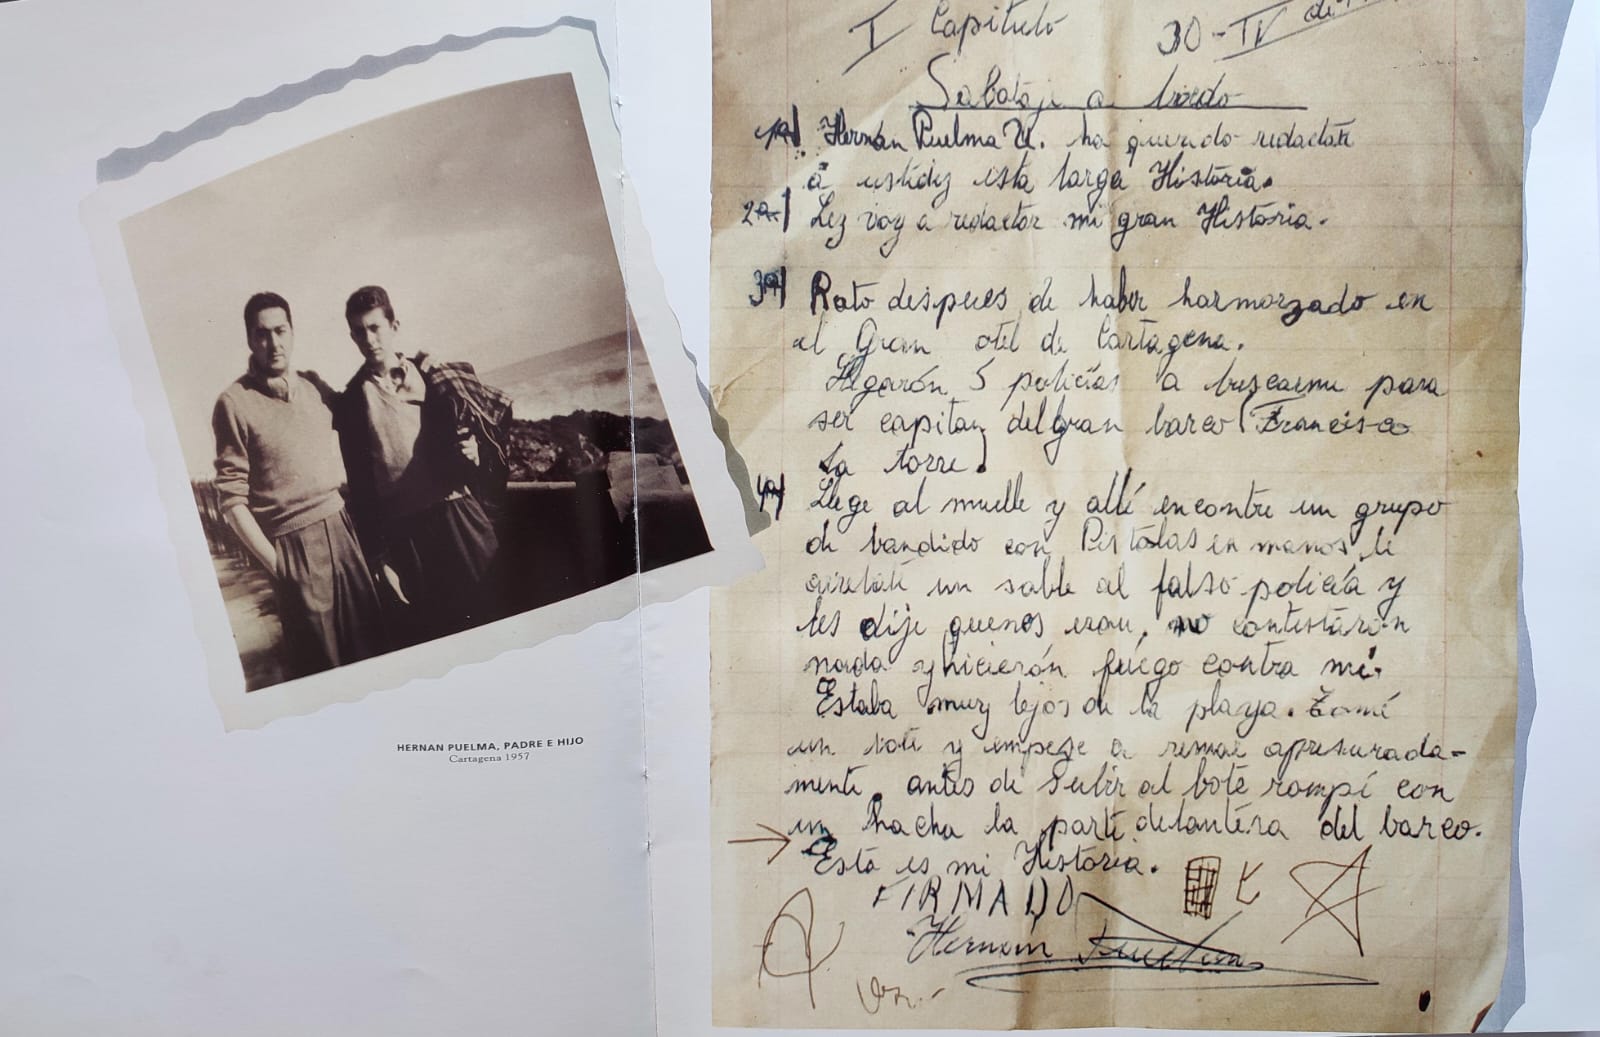 HERNAN PUELMA, PADRE E HIJO
Cartagena 1957
I Capitulo 30-IV
Sabotaje a bordo
1a) Hernán Puelma U. ha querido redactate
a ustedez esta larga História.
2a) Lez voy a redactar mi gran História.
3a) Rato despues de haber harmorzado en
el Gran otel de Cartagena.
Llegarón 5 policías a buscarme para
ser capitan del gran barco Francisco
La torre.
4a) Llege al muelle y allí encontre un grupo
de bandido con Pistólas en manos, le
arrebaté un sable al falso policía y
les dije quenes eran, no contestarón
nada y hicierón fuego contra mi.
Estaba muy lejos de la playa. Tomé
un bote y empese a remar apresurada-
mente, antes de subir al bote rompí con
un hacha la parte delantera del barco.
Esta es mi História.
FIRMADO
Hernán Puelma